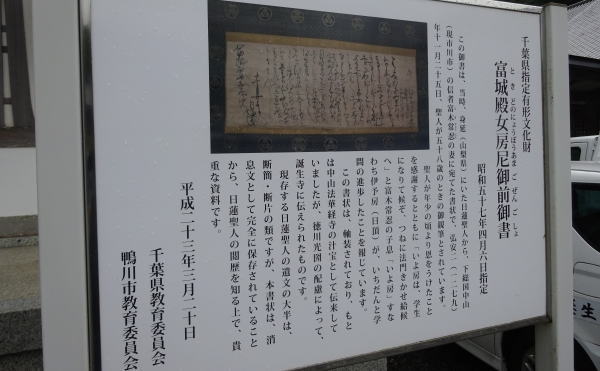 千葉県指定有形文化財
富城殿女房尼御前御書
と き どのにょうぼうあま ご ぜん ご しょ
昭和五十七年四月六日指定
この御書は、当時、身延(山梨県)にいた日蓮聖人から、下総国中山
(現市川市)の信者富木常忍の妻に宛てた書状で、弘安二(一二七九)
年十一月二十五日、聖人が五十八歳のときの御親筆とされています。
聖人が年少の頃より恩をうけたこと
を感謝するとともに「いよ房は、学生
になりて候ぞ、つねに法門きかせ給候
へ」と富木常忍の子息「いよ房」すな
わち伊予房(日頂)が、いちだんと学
問の進歩したことを報じています。
この書状は、軸装されており、もと
は中山法華経寺の什宝として伝来して
いましたが、徳川光圀の配慮によって、
誕生寺に伝えられたものです。
現存する日蓮聖人の遺文の大半は、
断簡・断片の類ですが、本書状は、消
息文として完全に保存されていること
から、日蓮聖人の閲歴を知る上で、貴
重な資料です。
平成二十三年三月二十日
千葉県教育委員会
鴨川市教育委員会